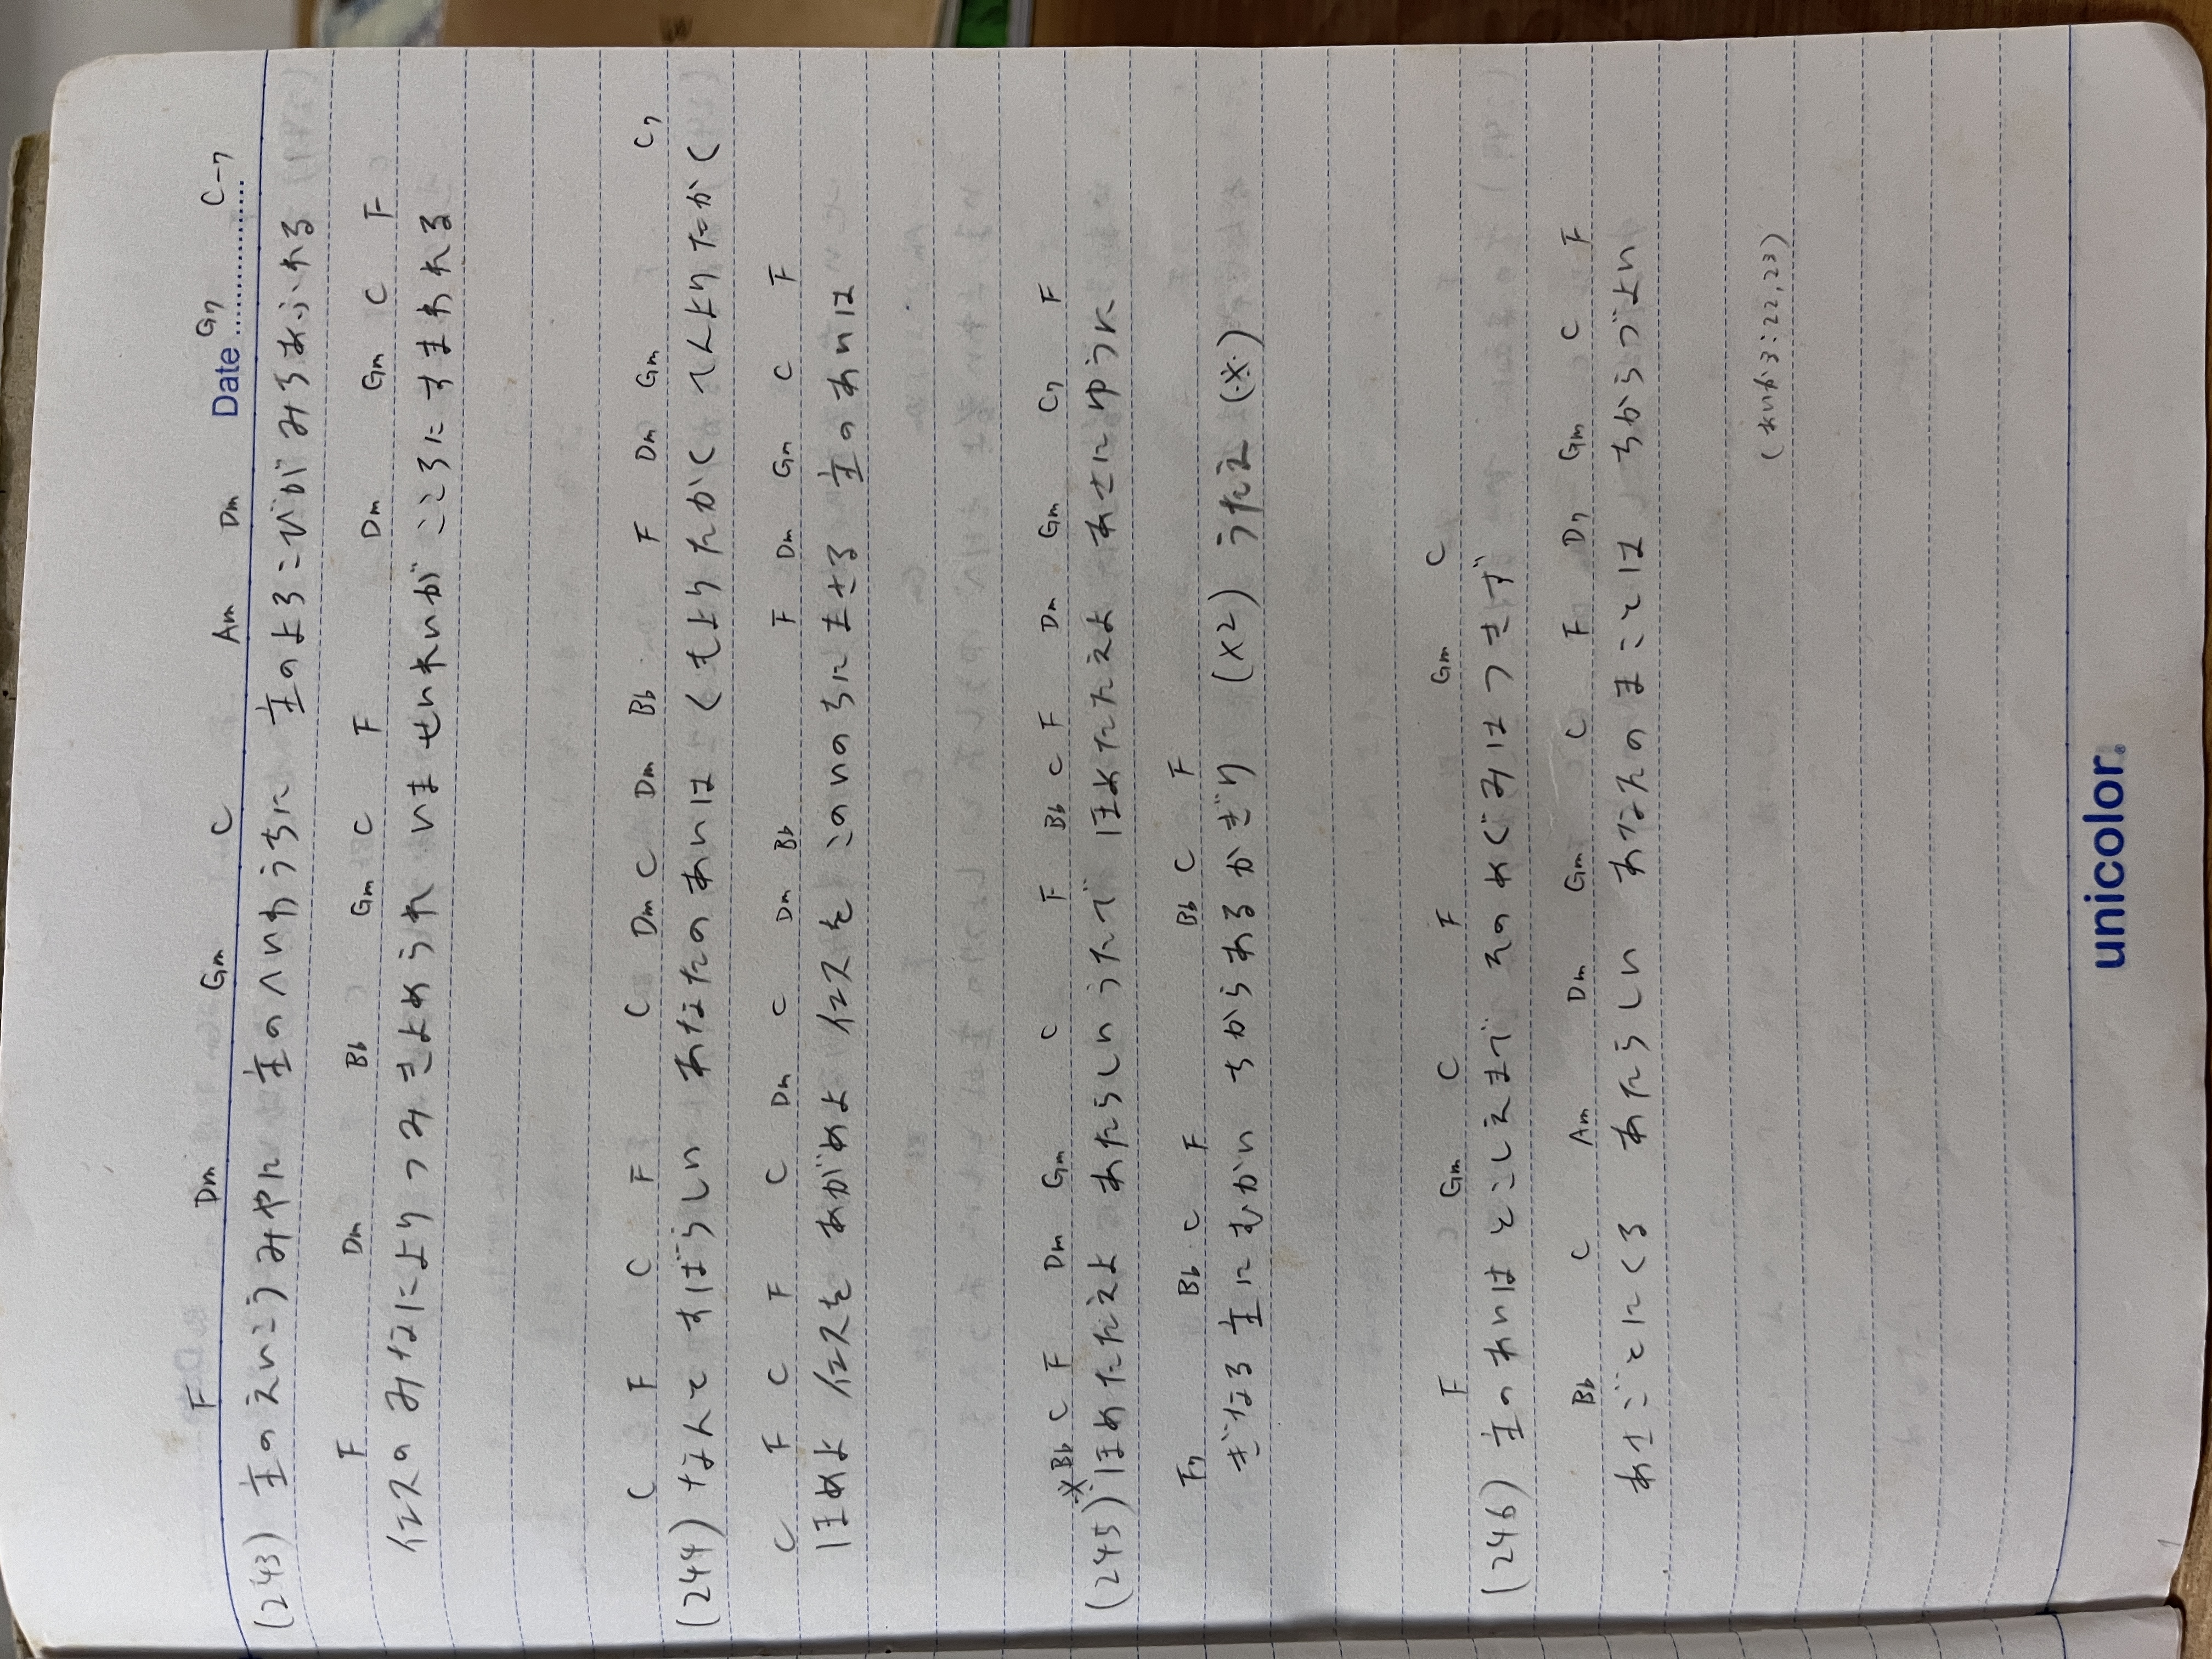 Date
F Dm Gm C Am Dm G7 C-7
(243) 主のえいこうみやに 主のへいわうちに 主のよろこびが みちあふれる
F Dm Bb Gm C F Dm Gm C F
イエスのみなにより つみきよめられ いませいれいが こころに すまわれる
C F C F C Dm C Dm Bb F Dm Gm C7
(244) なんて すばらしい あなたのあいは くもよりたかく てんよりたかく
C F C F C Dm C Dm Bb F Dm Gm C F
ほめよ イエスを あがめよ イエスを このいのちに まさる 主のあいは
※ Bb C F Dm Gm C F Bb C F Dm Gm C7 F
(245) ほめたたえよ あたらしい うたで ほめたたえよ あさにゆうに
F7 Bb C F Bb C F
ぎなる主にむかい ちからあるかぎり (x2) うたえ (※)
F Gm C F Gm C
(246) 主のあいはとこしえまで そのめぐみはつきず
Bb C Am Dm Gm C F D7 Gm C F
あさごとにくる あたらしい あなたのまことは ちからづよい
(あいか3:22,23)
unicolor.